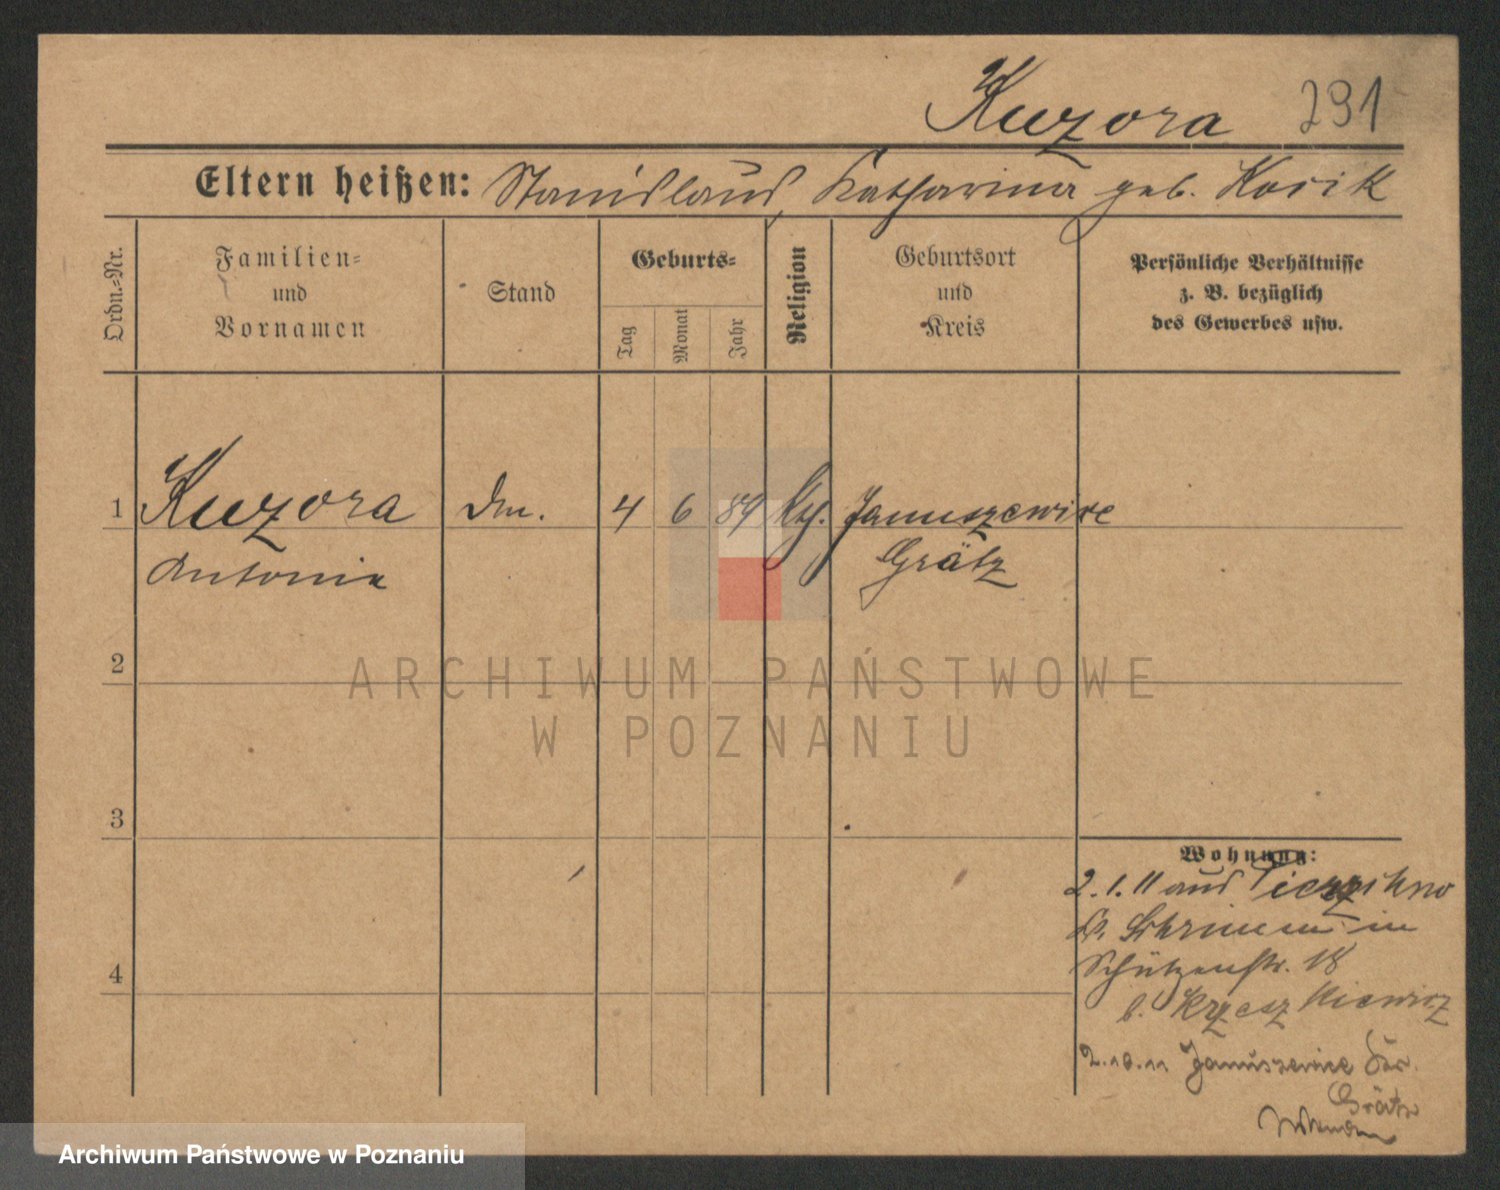 Kuzora 291
Eltern heißen: Stanislaus, Katharina geb. Kosik
Ordn.-Nr.
Familien-
und
Vornamen
Stand
Geburts-
Tag
Monat
Jahr
Religion
Geburtsort
und
Kreis
Persönliche Verhältnisse
z. B. bezüglich
des Gewerbes usw.
1 Kuzora Dm. 4 6 89 Kth. Januszewice
Antonie Grätz
2
ARCHIWUM PAŃSTWOWE
W POZNANIU
3
Wohnung:
2.1.11 aus
K. Schrimm in
4
Schützenstr. 18
b.
2.10.11 Januszewice Kr.
Grätz
Archiwum Państwowe w Poznaniu